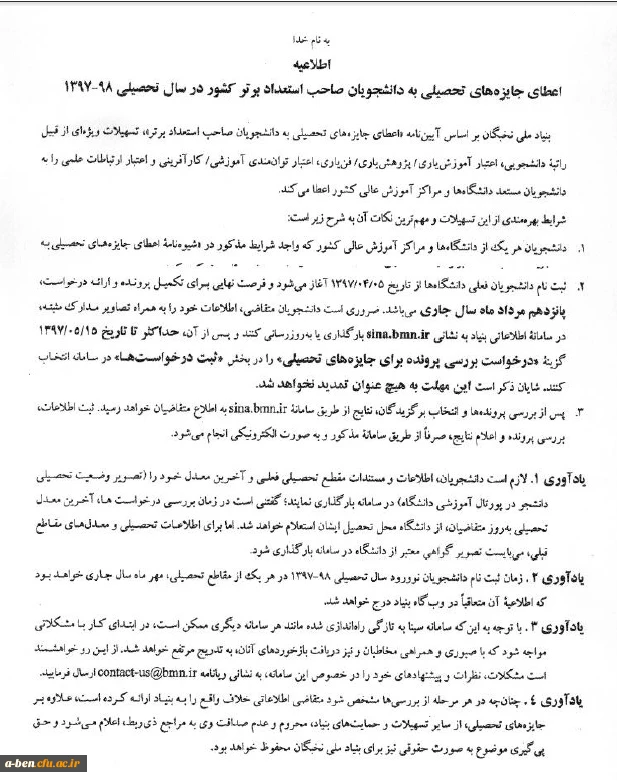 به نام خدا
اطلاعیه
اعطای جایزه‌های تحصیلی به دانشجویان صاحب استعداد برتر کشور در سال تحصیلی ۹۸-۱۳۹۷
بنیاد ملی نخبگان بر اساس آیین‌نامه «اعطای جایزه‌های تحصیلی به دانشجویان صاحب استعداد برتر»، تسهیلات ویژه‌ای از قبیل
راتبهٔ دانشجویی، اعتبار آموزش‌یاری/ پژوهش‌یاری/ فن‌یاری، اعتبار توان‌مندی آموزشی/ کارآفرینی و اعتبار ارتباطات علمی را به
دانشجویان مستعد دانشگاه‌ها و مراکز آموزش عالی کشور اعطا می‌کند.
شرایط بهره‌مندی از این تسهیلات و مهم‌ترین نکات آن به شرح زیر است:
۱. دانشجویان هر یک از دانشگاه‌ها و مراکز آموزش عالی کشور که واجد شرایط مذکور در «شیوه‌نامهٔ اعطای جایزه‌های تحصیلی به
۲. ثبت نام دانشجویان فعلی دانشگاه‌ها از تاریخ ۱۳۹۷/۰۴/۰۵ آغاز می‌شود و فرصت نهایی برای تکمیل پرونده و ارائه درخواست،
پانزدهم مرداد ماه سال جاری می‌باشد. ضروری است دانشجویان متقاضی، اطلاعات خود را به همراه تصاویر مدارک مثبته،
در سامانهٔ اطلاعاتی بنیاد به نشانی sina.bmn.ir بارگذاری یا به‌روزرسانی کنند و پس از آن، حداکثر تا تاریخ ۱۳۹۷/۰۵/۱۵
گزینهٔ «درخواست بررسی پرونده برای جایزه‌های تحصیلی» را در بخش «ثبت درخواست‌ها» در سامانه انتخاب
کنند. شایان ذکر است این مهلت به هیچ عنوان تمدید نخواهد شد.
۳. پس از بررسی پرونده‌ها و انتخاب برگزیدگان، نتایج از طریق سامانهٔ sina.bmn.ir به اطلاع متقاضیان خواهد رسید. ثبت اطلاعات،
بررسی پرونده و اعلام نتایج، صرفاً از طریق سامانهٔ مذکور و به صورت الکترونیکی انجام می‌شود.
یادآوری ۱. لازم است دانشجویان، اطلاعات و مستندات مقطع تحصیلی فعلی و آخرین معدل خود را (تصویر وضعیت تحصیلی
دانشجو در پورتال آموزشی دانشگاه) در سامانه بارگذاری نمایند؛ گفتنی است در زمان بررسی درخواست ها، آخرین معدل
تحصیلی به‌روز متقاضیان، از دانشگاه محل تحصیل ایشان استعلام خواهد شد. اما برای اطلاعات تحصیلی و معدل‌های مقاطع
قبلی، می‌بایست تصویر گواهی معتبر از دانشگاه در سامانه بارگذاری شود.
یادآوری ۲. زمان ثبت نام دانشجویان نوورود سال تحصیلی ۹۸-۱۳۹۷ در هر یک از مقاطع تحصیلی، مهر ماه سال جاری خواهد بود
که اطلاعیهٔ آن متعاقباً در وب‌گاه بنیاد درج خواهد شد.
یادآوری ۳. با توجه به این که سامانه سینا به تازگی راه‌اندازی شده مانند هر سامانه دیگری ممکن است، در ابتدای کار با مشکلاتی
مواجه شود که با صبوری و همراهی مخاطبان و نیز دریافت بازخوردهای آنان، به تدریج مرتفع خواهد شد. از این رو خواهشمند
است مشکلات، نظرات و پیشنهادهای خود را در خصوص این سامانه، به نشانی رایانامه contact-us@bmn.ir ارسال فرمایید.
یادآوری ۴. چنان‌چه در هر مرحله از بررسی‌ها مشخص شود متقاضی اطلاعاتی خلاف واقع را به بنیاد ارائه کرده است، علاوه بر
جایزه‌های تحصیلی، از سایر تسهیلات و حمایت‌های بنیاد، محروم و عدم صداقت وی به مراجع ذی‌ربط، اعلام می‌شود و حق
پی‌گیری موضوع به صورت حقوقی نیز برای بنیاد ملی نخبگان محفوظ خواهد بود.
a-ben.cfu.ac.ir